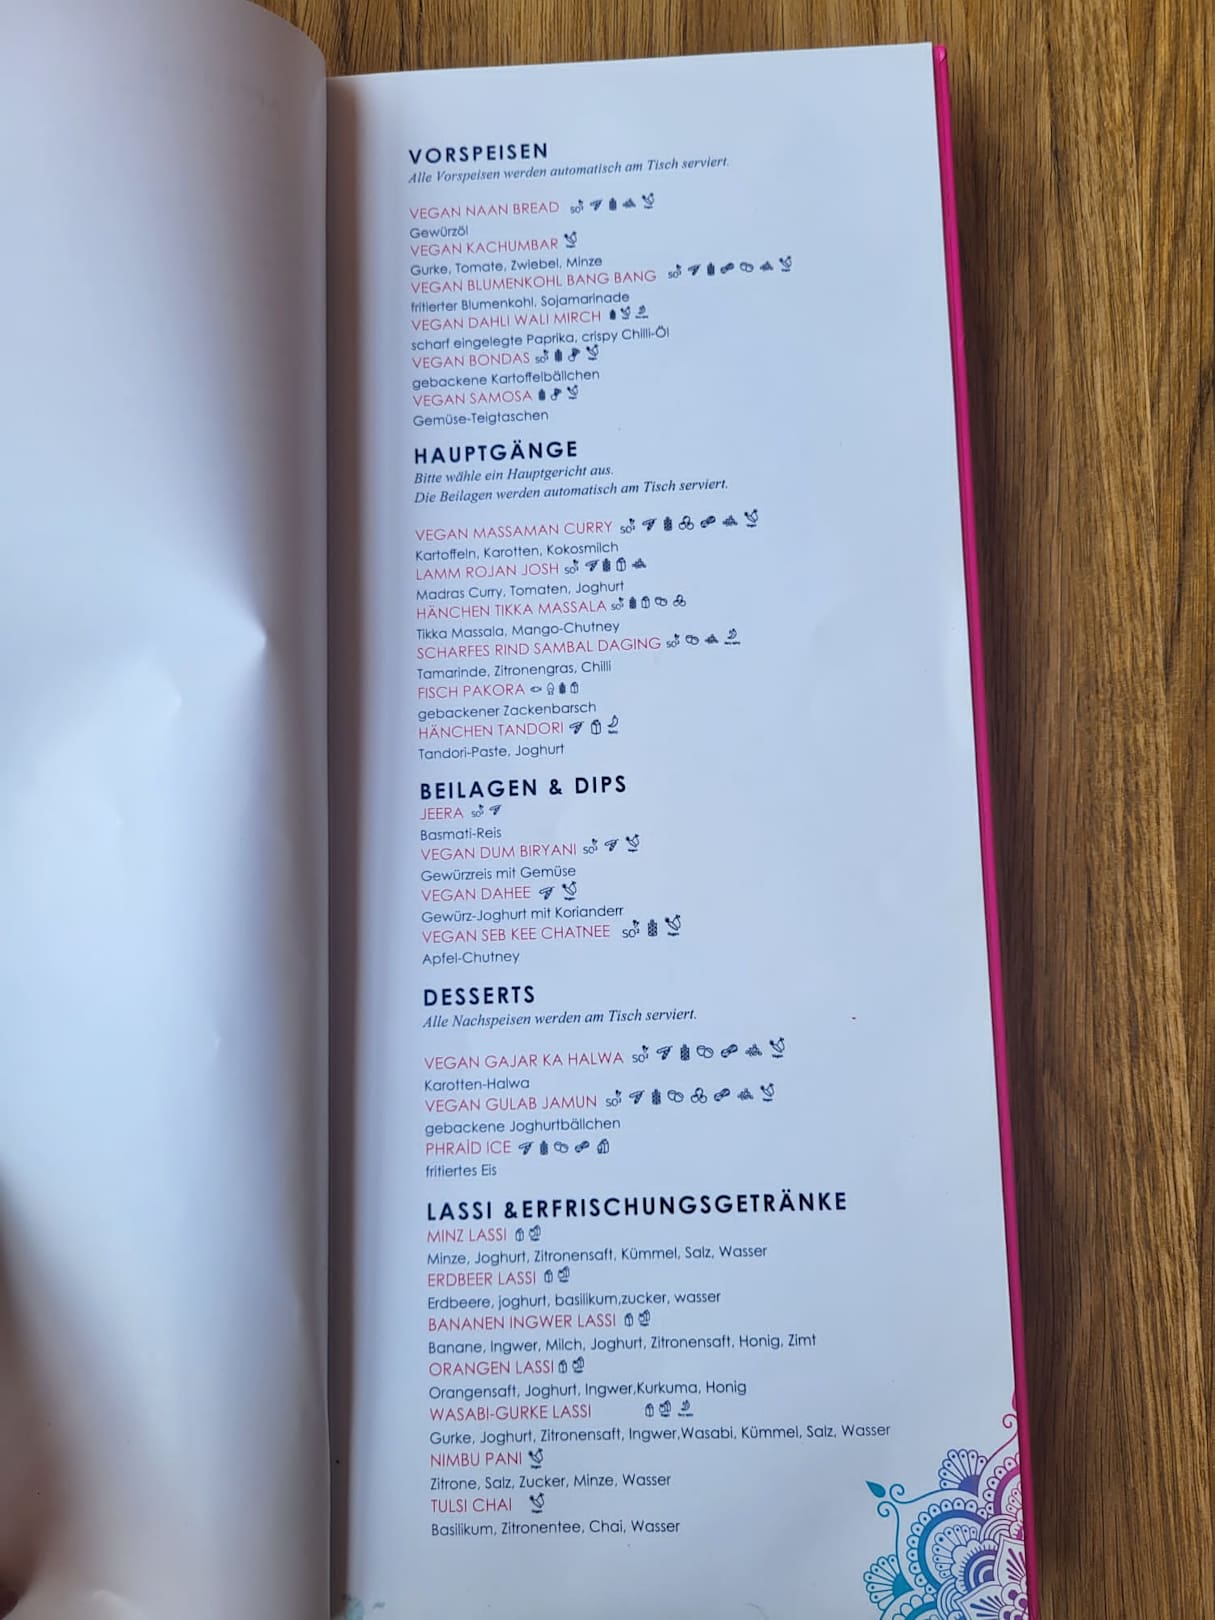 VORSPEISEN
Alle Vorspeisen werden automatisch am Tisch serviert.
VEGAN NAAN BREAD
Gewürzöl
VEGAN KACHUMBAR
Gurke, Tomate, Zwiebel, Minze
VEGAN BLUMENKOHL BANG BANG
fritierter Blumenkohl, Sojamarinade
VEGAN DAHLI WALI MIRCH
scharf eingelegte Paprika, crispy Chilli-Öl
VEGAN BONDAS
gebackene Kartoffelbällchen
VEGAN SAMOSA
Gemüse-Teigtaschen
HAUPTGÄNGE
Bitte wähle ein Hauptgericht aus.
Die Beilagen werden automatisch am Tisch serviert.
VEGAN MASSAMAN CURRY
Kartoffeln, Karotten, Kokosmilch
LAMM ROJAN JOSH
Madras Curry, Tomaten, Joghurt
HÄNCHEN TIKKA MASSALA
Tikka Massala, Mango-Chutney
SCHARFES RIND SAMBAL DAGING
Tamarinde, Zitronengras, Chilli
FISCH PAKORA
gebackener Zackenbarsch
HÄNCHEN TANDORI
Tandori-Paste, Joghurt
BEILAGEN & DIPS
JEERA
Basmati-Reis
VEGAN DUM BIRYANI
Gewürzreis mit Gemüse
VEGAN DAHEE
Gewürz-Joghurt mit Korianderr
VEGAN SEB KEE CHATNEE
Apfel-Chutney
DESSERTS
Alle Nachspeisen werden am Tisch serviert.
VEGAN GAJAR KA HALWA
Karotten-Halwa
VEGAN GULAB JAMUN
gebackene Joghurtbällchen
PHRAÍD ICE
fritiertes Eis
LASSI &ERFRISCHUNGSGETRÄNKE
MINZ LASSI
Minze, Joghurt, Zitronensaft, Kümmel, Salz, Wasser
ERDBEER LASSI
Erdbeere, joghurt, basilikum,zucker, wasser
BANANEN INGWER LASSI
Banane, Ingwer, Milch, Joghurt, Zitronensaft, Honig, Zimt
ORANGEN LASSI
Orangensaft, Joghurt, Ingwer,Kurkuma, Honig
WASABI-GURKE LASSI
Gurke, Joghurt, Zitronensaft, Ingwer,Wasabi, Kümmel, Salz, Wasser
NIMBU PANI
Zitrone, Salz, Zucker, Minze, Wasser
TULSI CHAI
Basilikum, Zitronentee, Chai, Wasser